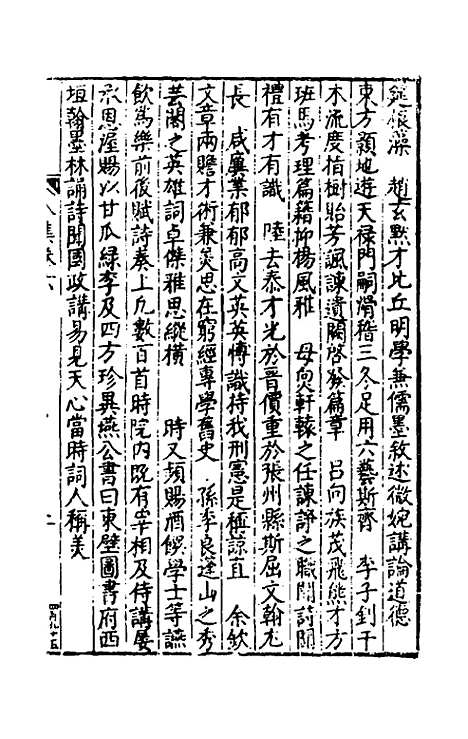 錠懷藻　趙玄默才比丘明學兼儒墨敘述微婉講論道德
東方顥地遊天祿門嗣滑稽三冬足用六藝斯齊　李子釗干
木流度指樹貽芳諷諫遺闕啓發篇章　呂向族茂飛熊才方
班馬考理篇籍抑揚風雅　母煚軒轅之任諫諍之職聞詩聞
禮有才有識　陸去泰才光於晋價重於張州縣斯屈文翰尤
長　咸廙業郁郁高文英英博識持我刑憲是極諒直　余欽
文章兩贍才術兼美思在窮經專學舊史　孫季良蓬山之秀
芸閣之英雄詞卓傑雅思縱横　時又頻賜酒饌學士等讌
飲爲樂前後賦詩奏上凡數百首時院內既有宰相及侍講屡
承恩渥賜以甘瓜綠李及四方珍異燕公書曰東壁圖書府西
垣翰墨林誦詩聞國政講易見天心當時詞人稱美